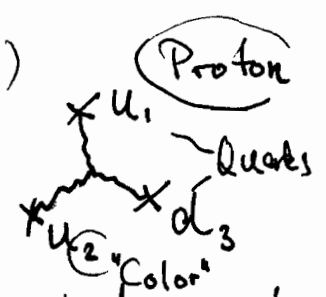 )
Proton
u₁
Quarks
u₂
d₃
"Color"